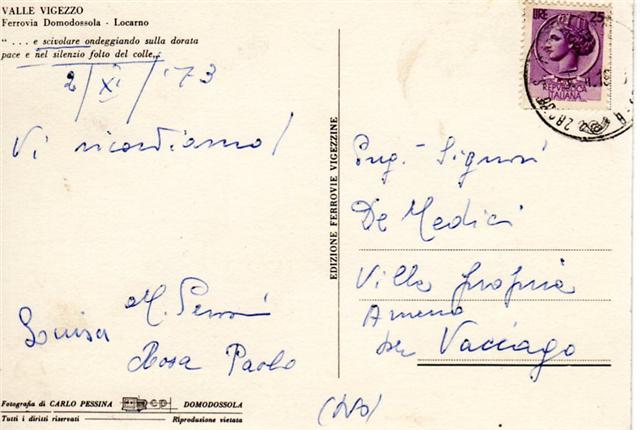 VALLE VIGEZZO
Ferrovia Domodossola - Locarno
“ ... e scivolare ondeggiando sulla dorata
pace e nel silenzio folto del colle...
2/XI/'73
Vi ricordiamo!
Luisa
Rosa Paolo
Fotografia di CARLO PESSINA DOMODOSSOLA
Tutti i diritti riservati Riproduzione vietata
EDIZIONE FERROVIE VIGEZZINE
LIRE 25
REPUBBLICA
ITALIANA
Gent. Signori
De Medici
Villa propria
Ameno
per Vacciago
(NO)